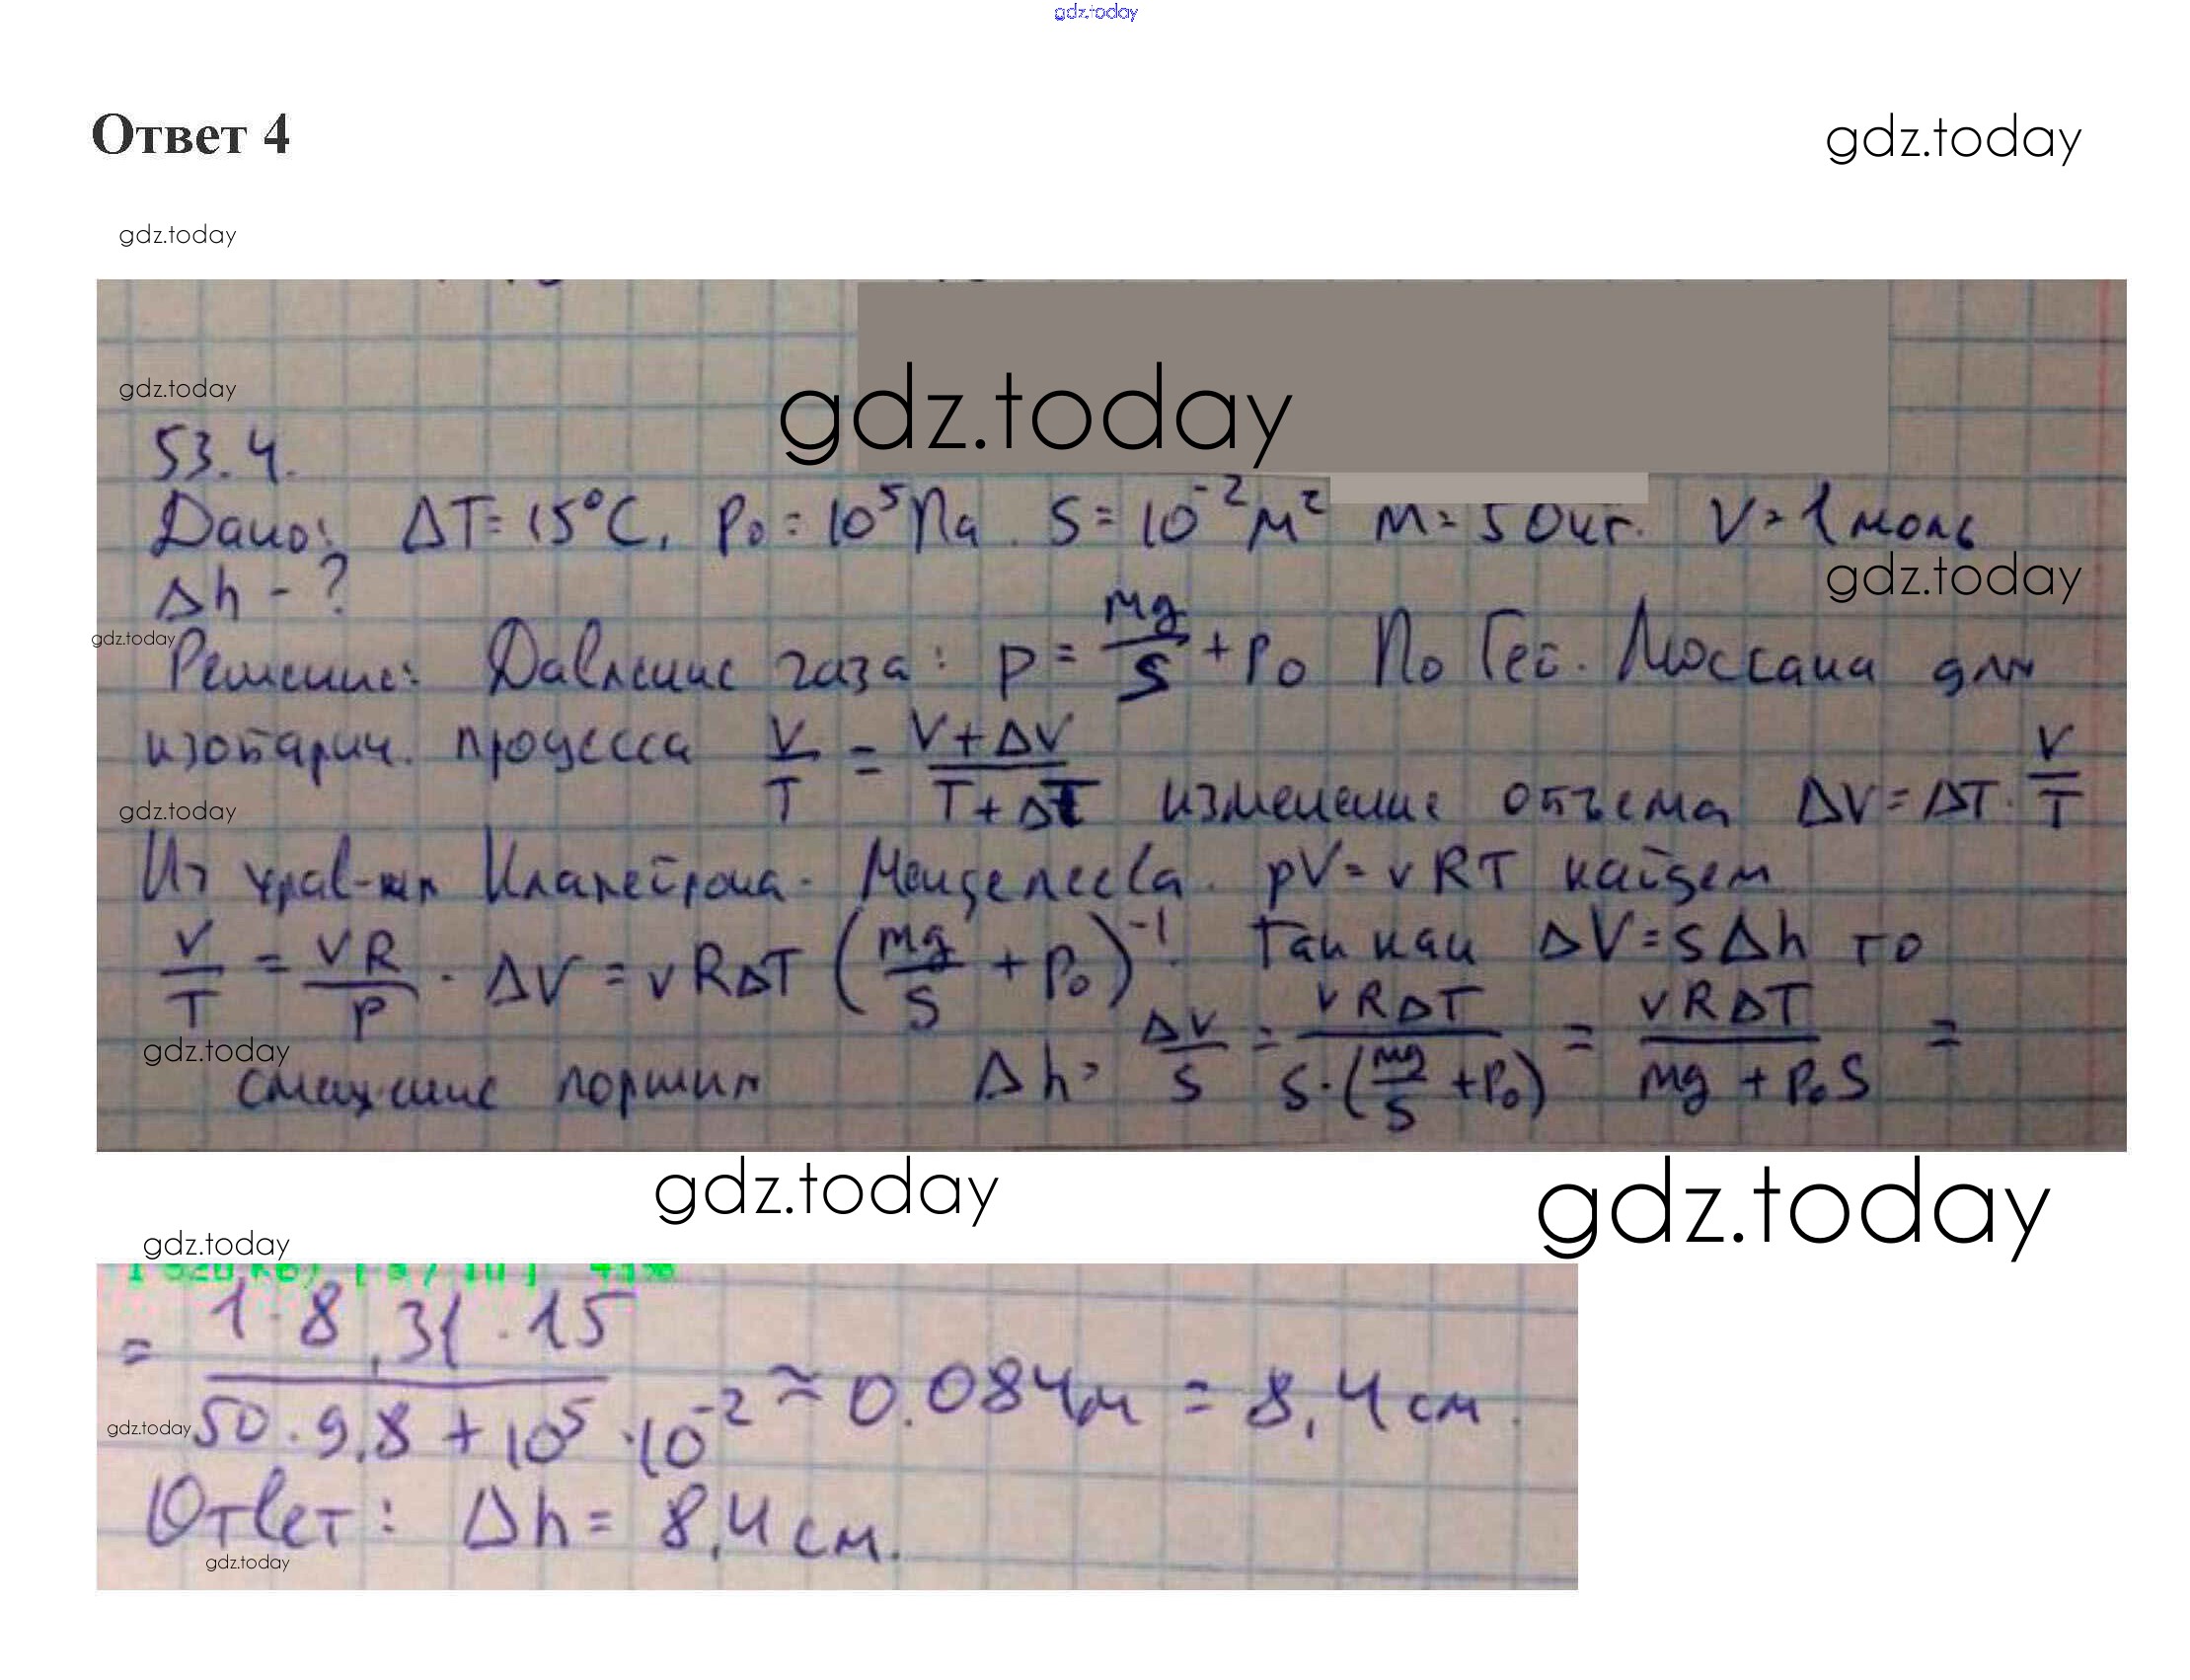 gdz.today
Ответ 4
gdz.today
gdz.today
gdz.today
gdz.today
53.4.
Дано: ΔT = 15°C, p₀ = 10⁵ Па. S = 10⁻² м² m = 50 кг. ν = 1 моль
gdz.today
Δh - ?
gdz.today
Решение: Давление газа: p = mg/S + p₀ По Гей. Люссака для
изобарич. процесса V/T = (V + ΔV)/(T + ΔT) изменение объема ΔV = ΔT · V/T
gdz.today
Из урав-ня Клапейрона - Менделеева. pV = νRT найдем
V/T = νR/p . ΔV = νRΔT (mg/S + p₀)⁻¹. Так как ΔV = SΔh то
gdz.today
смещение поршня Δh = ΔV/S = νRΔT/(S·(mg/S + p₀)) = νRΔT/(mg + p₀S) =
gdz.today
gdz.today
gdz.today
= (1·8,31·15)/(50·9,8 + 10⁵·10⁻²) ≈ 0.084м = 8,4 см.
gdz.today
Ответ: Δh = 8,4 см.
gdz.today